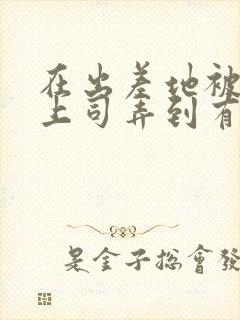 在出差地被
上司弄到有
是金子总會發